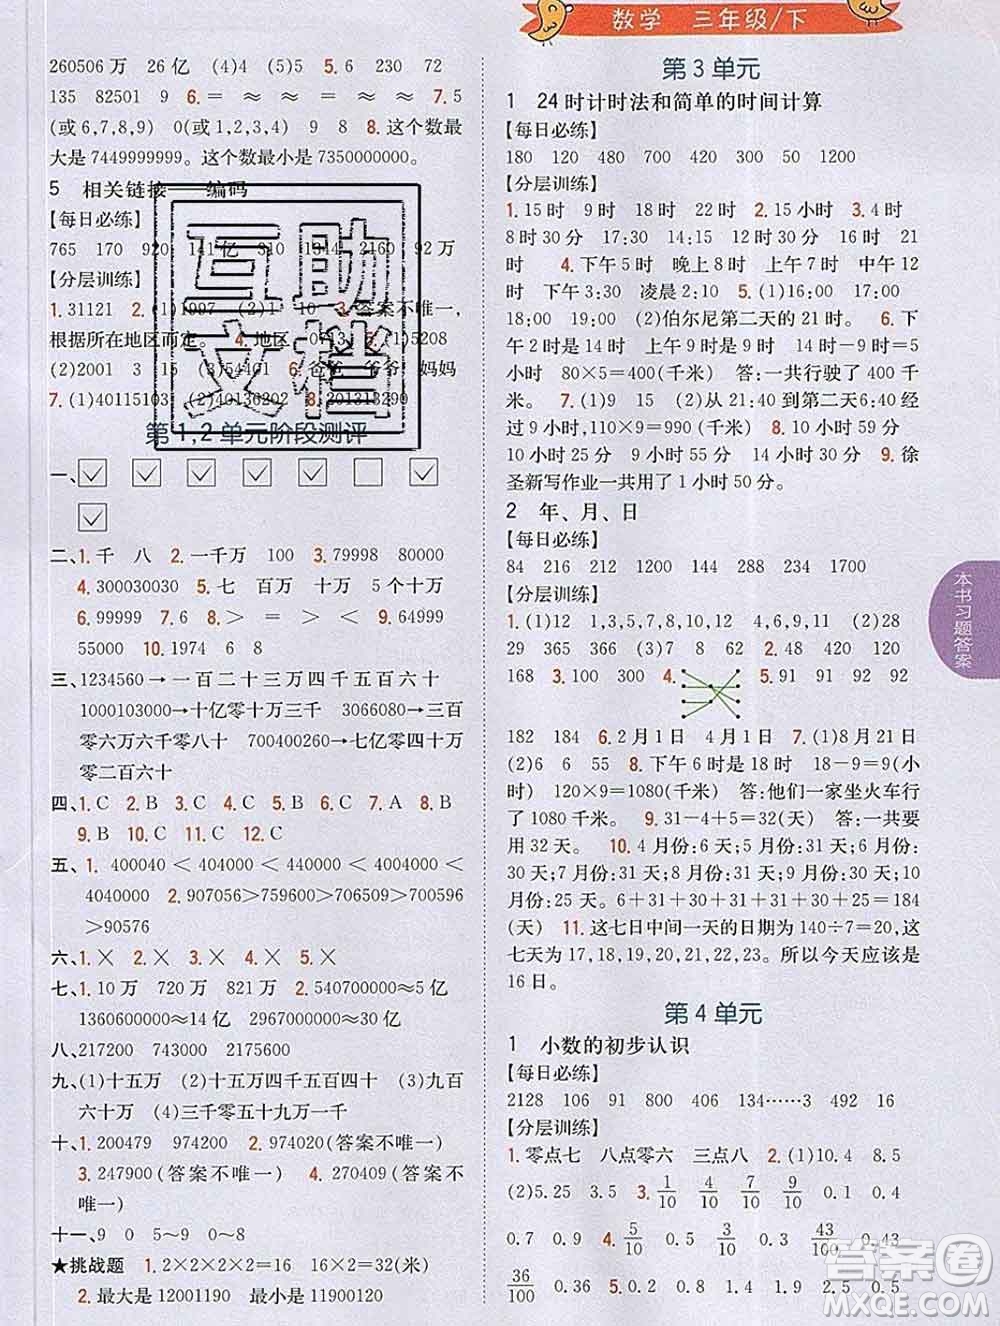 数学 三年级/下
260506万 26亿 (4)4 (5)5 5.6 230 72
135 82501 9 6.= ≈ ≈ = ≈ ≈ 7.5
(或6,7,8,9) 0(或1,2,3,4) 8.这个数最
大是7449999999。这个数最小是7350000000。
5 相关链接——编码
【每日必练】
765 170 920 141亿 310 1314 2160 92万
【分层训练】
1.31121 2.(1)1997 (2)1 10 3.答案不唯一,
根据所在地区而定。 4.地区 071313 5.(1)5208
(2)2001 3 15 (3)54401 6.爸爸 爷爷 妈妈
7.(1)40115103 (2)40136202 8.201313290
第1,2单元阶段测评
一、
二、1.千 八 2.一千万 100 3.79998 80000
4.300030030 5.七 百万 十万 5个百万
6.99999 7.6 8.> = > < 9.64999
55000 10.1974 6 8
三、1234560→一百二十三万四千五百六十
1000103000→十亿零十万三千 3066080→三百
零六万六千零八十 700400260→七亿零四十万
零二百六十
四、1.C 2.B 3.B 4.C 5.C 6.A 7.C 8.B
9.B 10.C 11.C 12.C
五、1. 400040<404000<400400<404000<
4040000 2.907056>759600>706509>597060
>90576
六、1.× 2.× 3.× 4.× 5.×
七、1.10万 720万 821万 2.540700000≈5亿
1360600000≈14亿 2967000000≈30亿
八、217200 743000 2175600
九、(1)十五万 (2)十五万四千五百 (3)九百
六十万 (4)三千零五十九万一千
十、1.200479 974200 2.974020(答案不唯一)
3.247900(答案不唯一) 4.270409(答案不
唯一)
十一、9 0 5~9 0~8
★挑战题 1.2×2×2×2=16 16×2=32(米)
2.最大是12001190 最小是11900120
第3单元
1 24时计时法和简单的时间计算
【每日必练】
180 120 480 700 420 300 50 1200
【分层训练】
1.15时 9时 18时 22时 2.15小时 3.4时
8时30分 17:30 14:15 9时 18时 16时 21
时 4.下午5时 晚上8时 早晨7时 中午12
时 下午3:30 凌晨2:10 5.(1)16:00 17:00
18:00 19:00 (2)伯尔尼第二天的2:00 6.下
午2时是14时 14-9=5时
80×5=400(千米) 答:一共行驶了400
千米。 7.(1)9 15 (2)从第一天到第二天6:40
9小时,110×9=990(千米) 8.3小时30分
10小时25分 7小时 11小时40分 9.徐
圣新写作业一共用了1小时50分。
2 年、月、日
【每日必练】
84 216 212 1000 360 234 1700
【分层训练】
1.(1)12 1,3,5,7,8,10,12 4,6,9,11 (2)28
29 365 366 (3)7 8 62 2.(1)48 (2)120
168 3.100 300 4. 5.91 91 92 92
182 184 6.2月1日 4月1日 7.(1)8月21日
(2)6 6 55 8.下午6时是18时 18-9=9
小时 120×9=1080(千米) 答:他们一家坐火车行
了1080千米。 9.31-4+5=32(天) 答:一共要
用32天。 10.4月份:6天;5月份:31天;6月份:
30天;7月份:31天;8月份:31天;9月份:30天;10
月份:25天。6+31+30+31+31+30+25=184
(天) 11.这七日中间一天的日期为140÷7=20,这
七天为17,18,19,20,21,22,23。所以今天应该是
16日。
第4单元
1 小数的初步认识
【每日必练】
2128 106 91 800 406 134……3 492 16
【分层训练】
1.零点七 八点零六 三点八 2.(1)10.4 8.5
(2)5.25 3.5 3. 1/10 4/10 7/100 9/100 0.1 0.4
0.07 0.09 4. 5/10 0.5 3/10 0.3 43/100 0.43
36/100 0.36 5.0.2 0.8 1.4 2.5
本书习题答案
互助文档
答案圈
MXQE.COM